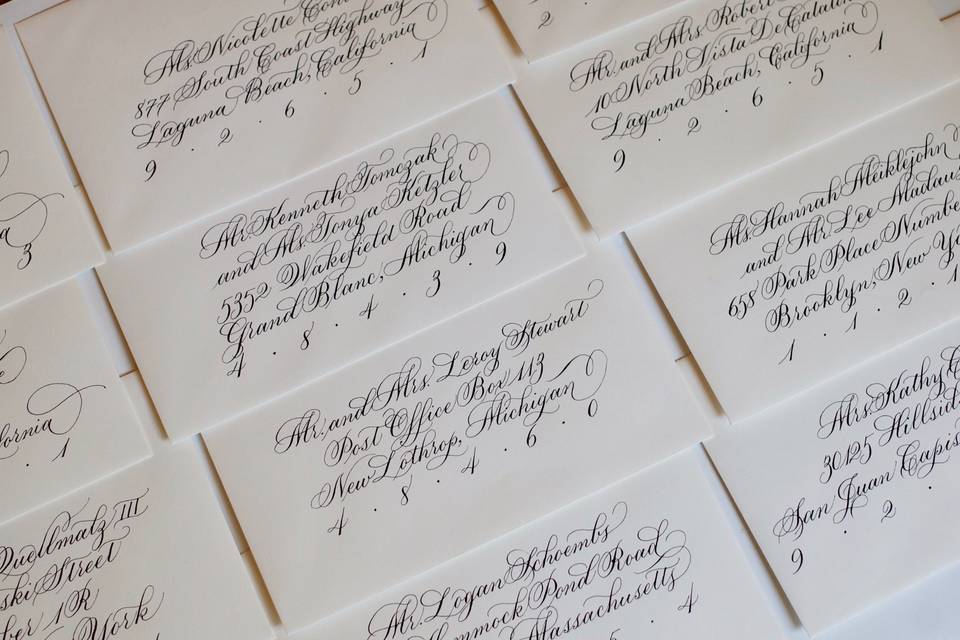 Ms. Nicolette
877 South Coast Highway
Laguna Beach, California
9 . 2 . 6 . 5 . 1
2 .
Mr. and Mrs. Robert
10 North Vista De
Laguna Beach, California
9 . 2 . 6 . 5 . 1
3
Mr. Kenneth Tomczak
and Ms. Tonya Ketzler
5352 Wakefield Road
Grand Blanc, Michigan
4 . 8 . 4 . 3 . 9
Ms. Hannah Meiklejohn
and Mr. Lee Madaus
658 Park Place Number
Brooklyn, New Yo
1 . 1 . 2 . 1
fornia
. 1
Mr. and Mrs. Leroy Stewart
Post Office Box 113
New Lothrop, Michigan
4 . 8 . 4 . 6 . 0
Mrs. Kathy
30125 Hillsid
San Juan Capis
9 . 2 .
Quellmatz III
ski Street
ber 1R
York
Mr. Logan Schoembs
mmock Pond Road
Massachusetts
5 . 4